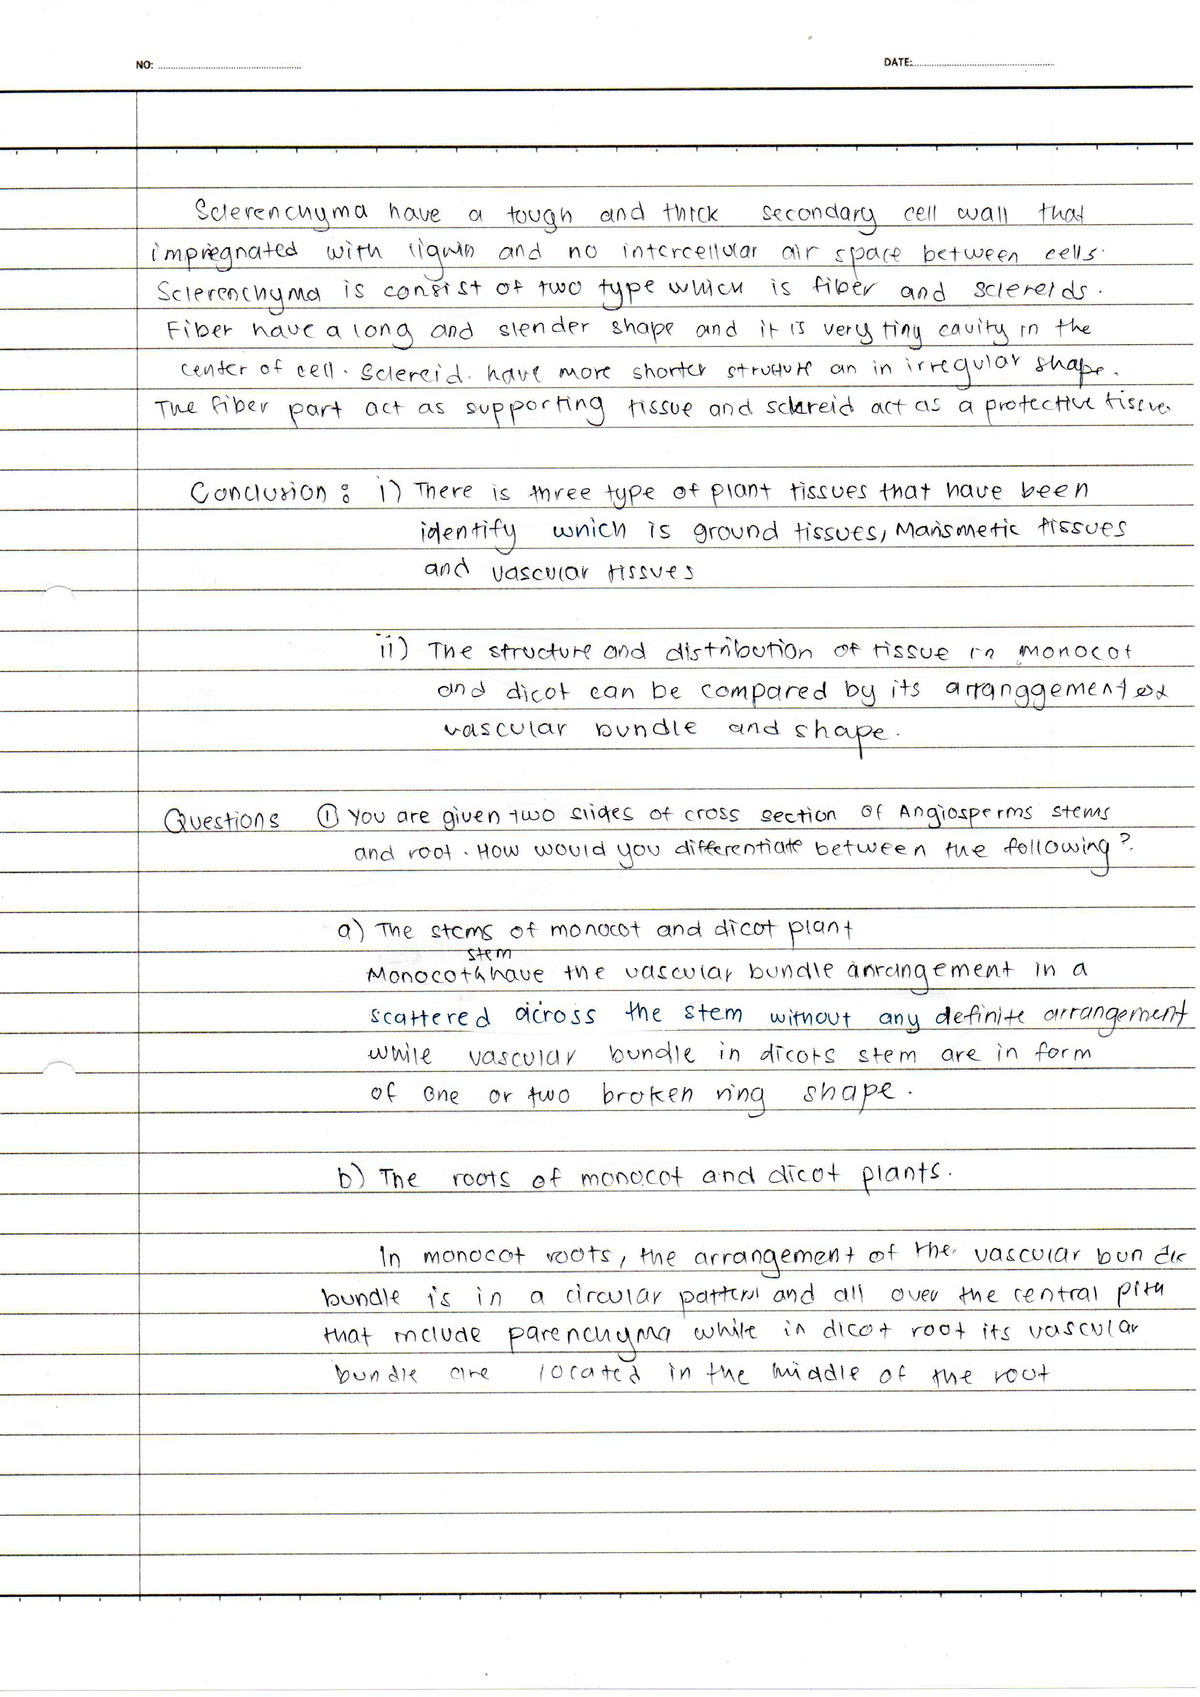 NO:
DATE:
Sclerenchyma have a tough and thick secondary cell wall that
impregnated with lignin and no intercellular air space between cells.
Sclerenchyma is consist of two type which is fiber and sclereids.
Fiber have a long and slender shape and it is very tiny cavity in the
center of cell. Sclereid. have more shorter structure an in irregular shape.
The fiber part act as supporting tissue and sclereid act as a protective tissue
Conclusion : i) There is three type of plant tissues that have been
identify which is ground tissues, Marismetic tissues
and vascular tissues
ii) The structure and distribution of tissue in monocot
and dicot can be compared by its arranggement of
vascular bundle and shape.
Questions ① You are given two slides of cross section of Angiosperms stems
and root. How would you differentiate between the following?
a) The stems of monocot and dicot plant
stem
Monocot have the vascular bundle arrangement in a
scattered across the stem without any definite arrangement
while vascular bundle in dicots stem are in form
of one or two broken ring shape.
b) The roots of monocot and dicot plants.
In monocot roots, the arrangement of the vascular bundle
bundle is in a circular pattern and all over the central pith
that include parenchyma while in dicot root its vascular
bundle are located in the middle of the root